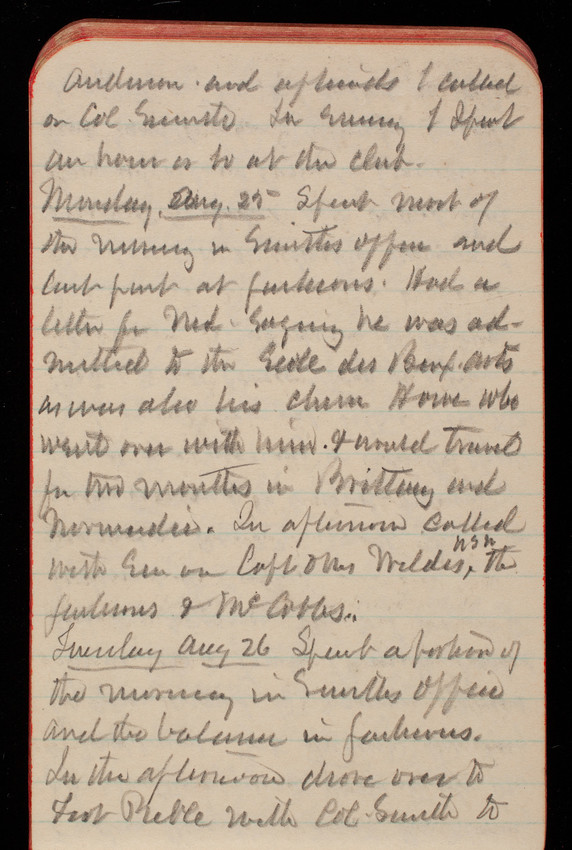 Anderson and afterwards I called
on Col. Smith. In evening I spent
an hour or so at the club.
Monday, Aug. 25 Spent most of
the morning in Smiths office and
last part at Jacksons. Had a
letter fr Ned. Saying he was ad-
mitted to the Ecole des Beaux arts
as was also his chum Howe who
went over with him. & would travel
for two months in Brittany and
Normandie. In afternoon called
with Em on Capt & Mrs Wildes, USN, the
Jacksons & McCobbs.
Tuesday Aug 26 Spent a portion of
the morning in Smiths office
and the balance in Jacksons.
In the afternoon drove over to
Fort Preble with Col. Smith to